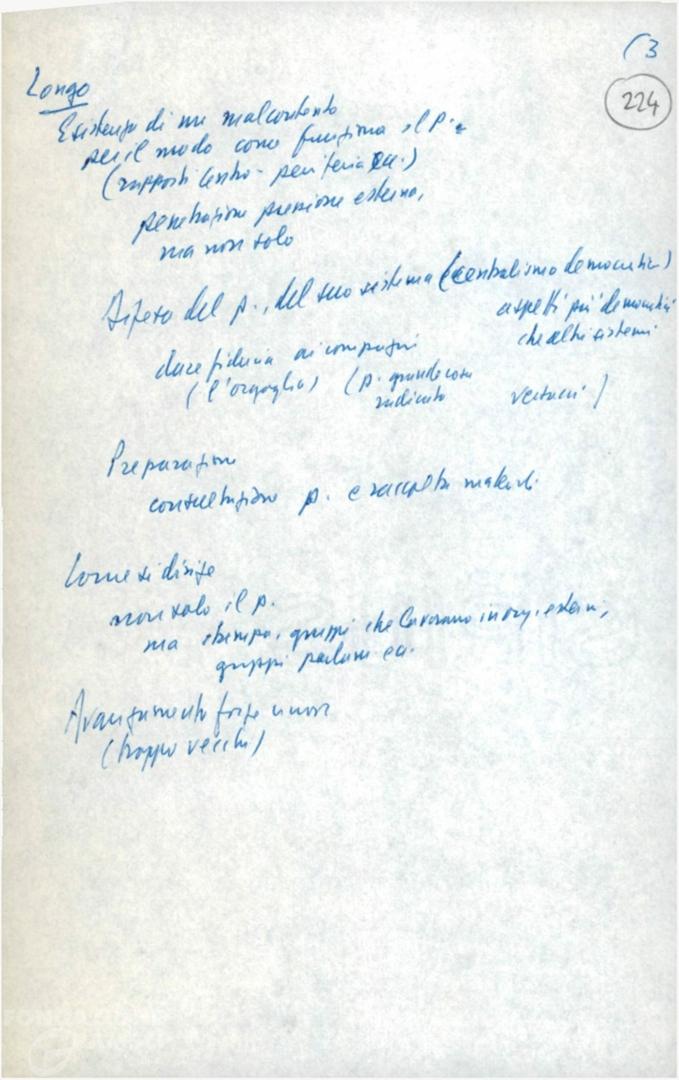 (3
224
Longo
Esistenza di un malcontento
per il modo come funziona il p.
(rapporti centro-periferia ecc.)
penetrazione pressione esterna,
ma non solo
Difesa del p., del suo sistema (centralismo democratico)
aspetti più democratici
che altri sistemi
dare fiducia ai compagni
(l'orgoglio) (p. grande cosa
radicato
Preparazione
consultazione p. e raccolta materiali
Come si dirige
non solo il p.
ma stampa, gruppi che lavorano in org. esterni,
gruppi parlam. ecc.
Avanzamento forze nuove
(troppo vecchi)